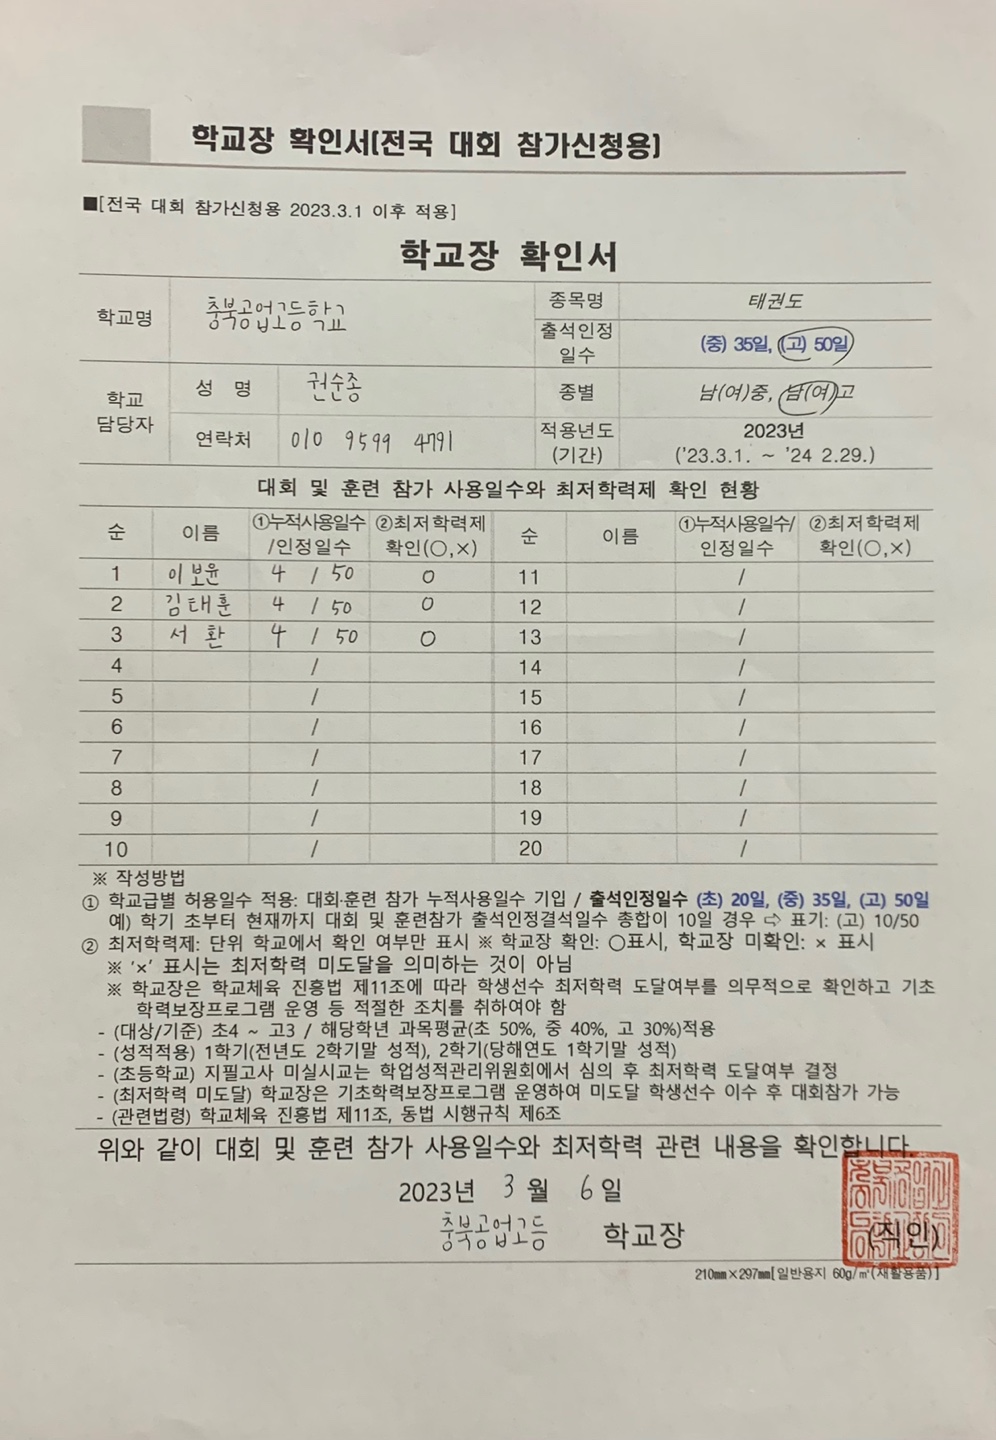 학교장 확인서(전국 대회 참가신청용)
■[전국 대회 참가신청용 2023.3.1 이후 적용]
학교장 확인서
학교명 충북공업고등학교 종목명 태권도
출석인정 일수 (중) 35일, (고) 50일
학교 담당자 성 명 권순종 종별 남(여)중, 남(여)고
연락처 010 9599 4791 적용년도 (기간) 2023년 ('23.3.1. ~ '24 2.29.)
대회 및 훈련 참가 사용일수와 최저학력제 확인 현황
순 이름 ①누적사용일수 /인정일수 ②최저학력제 확인(○,×) 순 이름 ①누적사용일수/ 인정일수 ②최저학력제 확인(○,×)
1 이보윤 4 / 50 ○ 11 /
2 김태훈 4 / 50 ○ 12 /
3 서환 4 / 50 ○ 13 /
4 / 14 /
5 / 15 /
6 / 16 /
7 / 17 /
8 / 18 /
9 / 19 /
10 / 20 /
※ 작성방법
① 학교급별 허용일수 적용: 대회·훈련 참가 누적사용일수 기입 / 출석인정일수 (초) 20일, (중) 35일, (고) 50일
예) 학기 초부터 현재까지 대회 및 훈련참가 출석인정결석일수 총합이 10일 경우 ⇨ 표기: (고) 10/50
② 최저학력제: 단위 학교에서 확인 여부만 표시 ※ 학교장 확인: ○표시, 학교장 미확인: × 표시
※ '×' 표시는 최저학력 미도달을 의미하는 것이 아님
※ 학교장은 학교체육 진흥법 제11조에 따라 학생선수 최저학력 도달여부를 의무적으로 확인하고 기초
학력보장프로그램 운영 등 적절한 조치를 취하여야 함
- (대상/기준) 초4 ~ 고3 / 해당학년 과목평균(초 50%, 중 40%, 고 30%)적용
- (성적적용) 1학기(전년도 2학기말 성적), 2학기(당해연도 1학기말 성적)
- (초등학교) 지필고사 미실시교는 학업성적관리위원회에서 심의 후 최저학력 도달여부 결정
- (최저학력 미도달) 학교장은 기초학력보장프로그램 운영하여 미도달 학생선수 이수 후 대회참가 가능
- (관련법령) 학교체육 진흥법 제11조, 동법 시행규칙 제6조
위와 같이 대회 및 훈련 참가 사용일수와 최저학력 관련 내용을 확인합니다.
2023년 3월 6일
충북공업고등 학교장 (직인)
210㎜×297㎜[일반용지 60g/㎡(재활용품)]